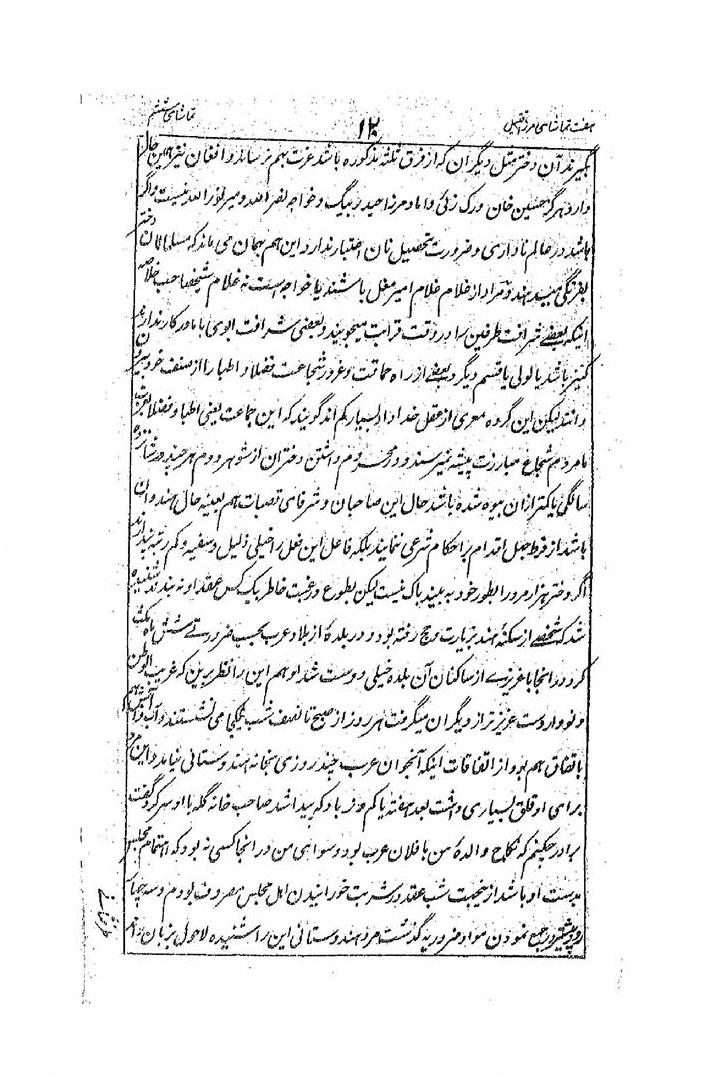 هفت تماشای مرزا قتیل ۱۲ تماشای ششم
بگیرند آن دختر مثل دیگران که از فرق ثلثه مذکوره باشد عزت بهم نرساند و افغان نیز همین حال
دارد هرگز حسین خان ورک زئی داماد مرزا حیدر بیگ و خواجه نصر الله و میر نور الله نیست و اگر
باشد در عالم ناداری و ضرورت تحصیل نان اختیار ندارد و این هم بهمان می ماند که مسلمانان دختر
بفرنگی میدهند و مراد از غلام غلام امیر مغل باشند یا خواجه است نه غلام شیخصاحب خلاصه
اینکه بعضے شرافت طرفین را در وقت قرابت میجویند و بعضی شرافت ابوی با مادر کار ندارند
کنیز باشد یا لولی یا قسم دیگر و بعضے از راه حماقت و غرور شجاعت فضلا و اطبا را از صنف خود بیرون
دانند لیکن این گروه معری از عقل خداداد بسیار کم اند گویند که این جماعت یعنی اطبا و فضلا
با مردم شجاع مبارزت پیشه نمیرسند و در محروم داشتن دختران از شوهر دوم هر چند در شانزده
سالگی یا کمتر ازان بیوه شده باشد حال این صاحبان و شرفای قصبات هم بعینه حال هندوان
باشد از فرط جهل اقدام بر احکام شرعی ننمایند بلکه فاعل این فعل را خیلی ذلیل و سفیه و کم رتبه پندارند
اگر دختر هزار مرد را بطور خود به بیند باک نیست لیکن بطوع و رغبت خاطر بیک کس عقد او نه بندند شنیده
شد که شخصے از سکنه هند بزیارت حج رفته بود و در بلدهٔ از بلاد عرب بحسب ضرورتے شش ماه مکث
کرد در انجا با عزیزے از ساکنان آن بلده خیلی دوست شد او هم این را نظر برین که غریب الوطن
و نو وارد ست عزیزتر از دیگران میگرفت هر روز از صبح تا نصف شب یکجا می نشستند و آب و آش هم
باتفاق هم بود از اتفاقات اینکه آنجوان عرب چند روزی بخانه هندوستانی نیامد و این مرد
برای او قلق بسیاری داشت بعد هفته یا کم و زیاد که پیدا شد صاحب خانه گله با او سر کرد گفت
برادر چکنم که نکاح والدهٔ من با فلان عرب بود و سوای من در انجا کسی نه بود که اهتمام مجلس
بدست او باشد ازینجهت شب عقد در شربت خورانیدن اهل مجلس مصروف بودم و سه چهار
روز پیشتر در جمع نمودن مواد ضروریه گذشت مرد هندوستانی این را شنیده لاحول بر زبان راند